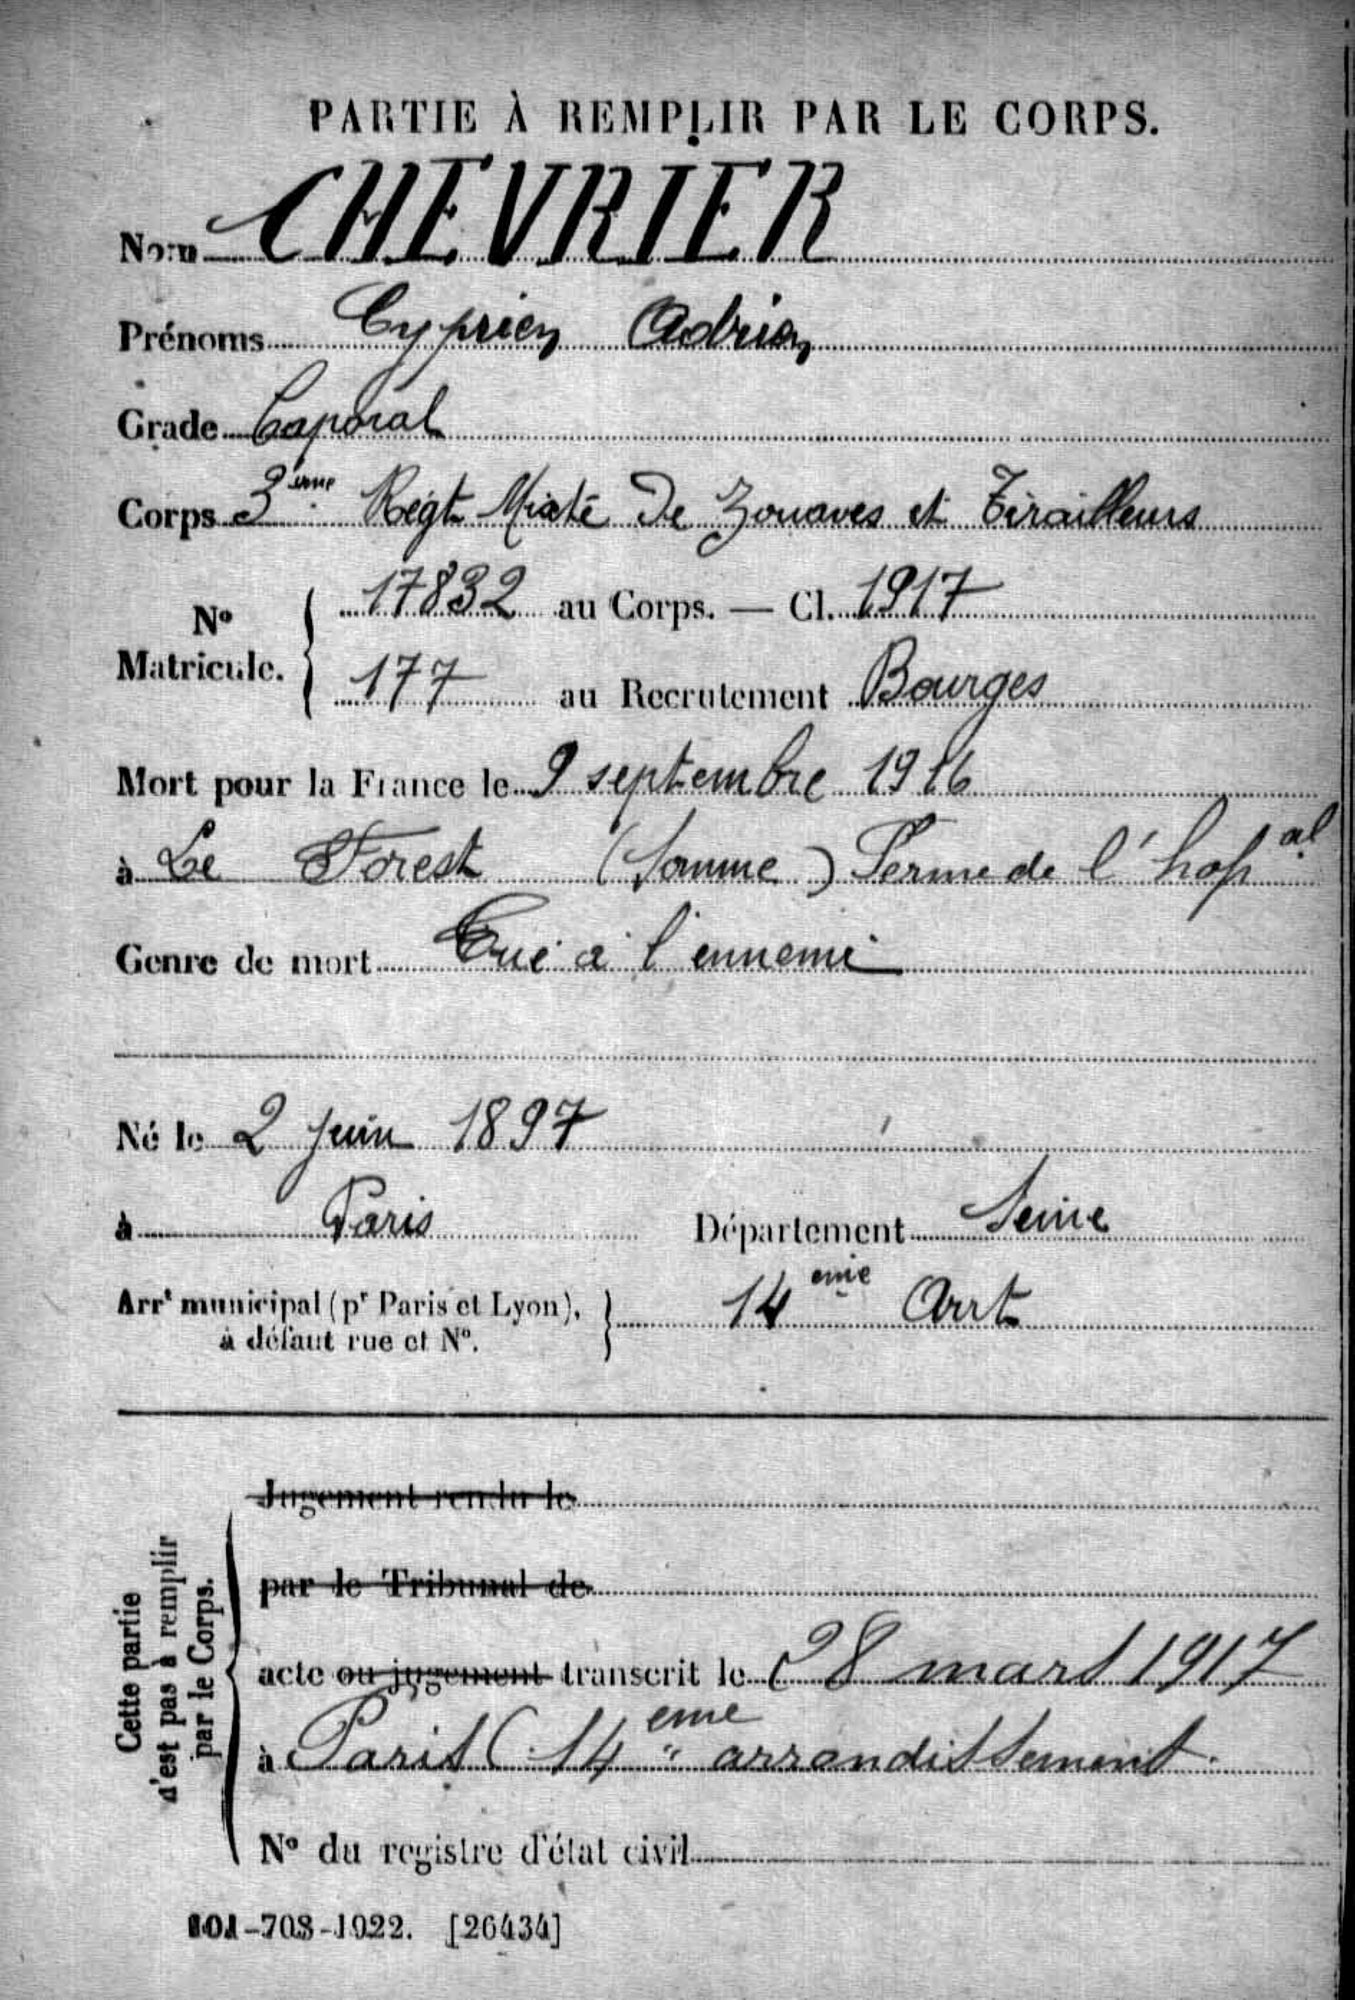 PARTIE À REMPLIR PAR LE CORPS.
Nom CHEVRIER
Prénoms Cyprien Adrien
Grade Caporal
Corps 3ème Régt Mixte De Zouaves et Tirailleurs
No Matricule. { 17832 au Corps. — Cl. 1917
177 au Recrutement Bourges
Mort pour la France le 9 septembre 1916
à Le Forest (Somme) Ferme de l'hopal
Genre de mort Tué à l'ennemi
Né le 2 Juin 1897
à Paris Département Seine
Arrt municipal (pr Paris et Lyon), à défaut rue et No. } 14eme Arrt
Cette partie n'est pas à remplir par le Corps.
Jugement rendu le
par le Tribunal de
acte ou jugement transcrit le 28 mars 1917
à Paris (14eme arrondissement.
No du registre d'état civil
101-708-1922. [26434]